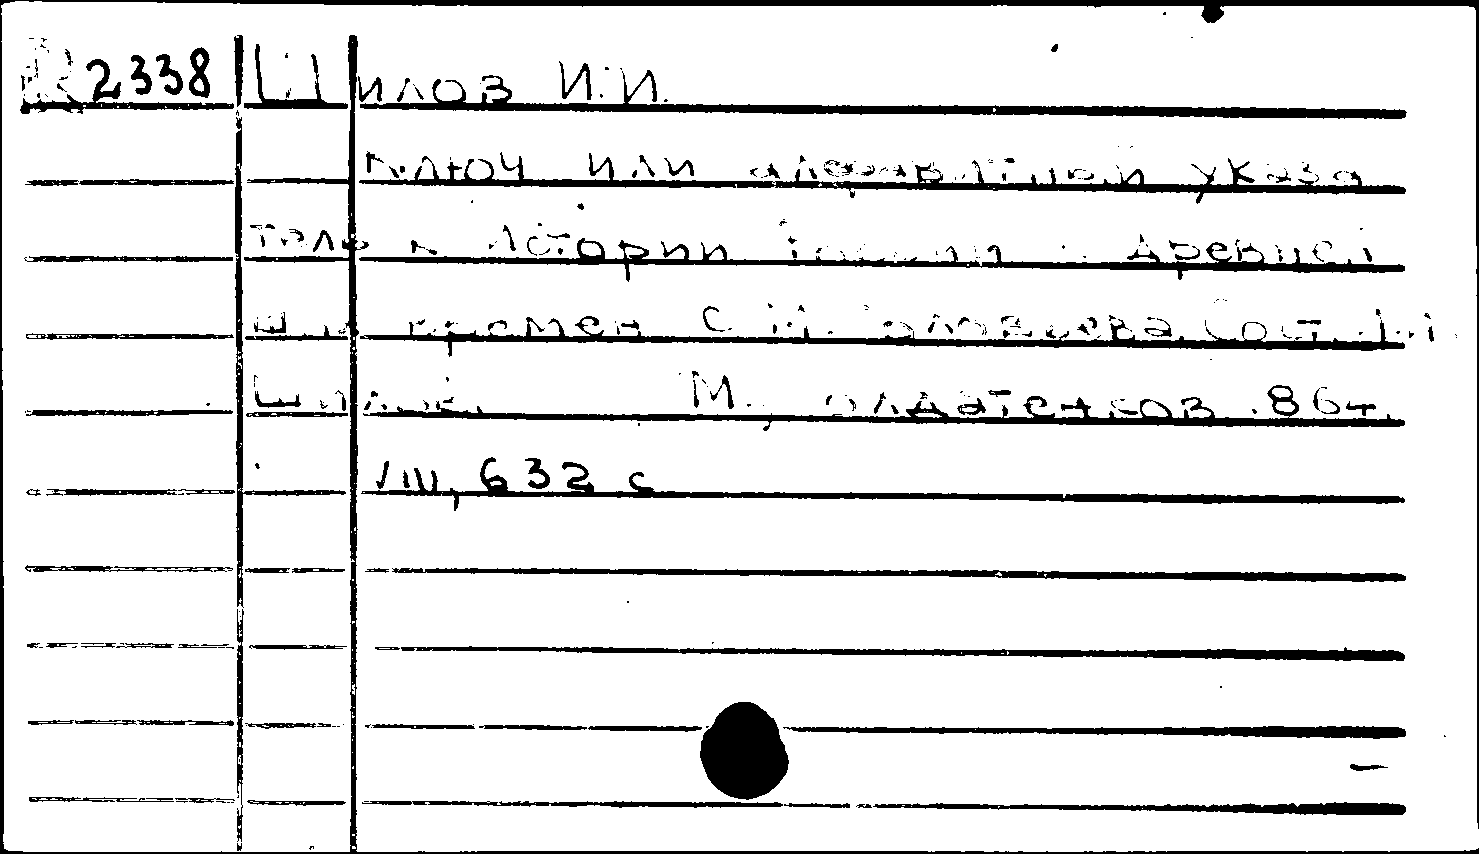 R 2338 Шилов И.И.
Ключ или алфавитный указа
тель к Истории России с древней
ших времен С.М. Соловьева. Сост. И.И.
Шилов. М., Солдатенков 864.
VIII, 632 с